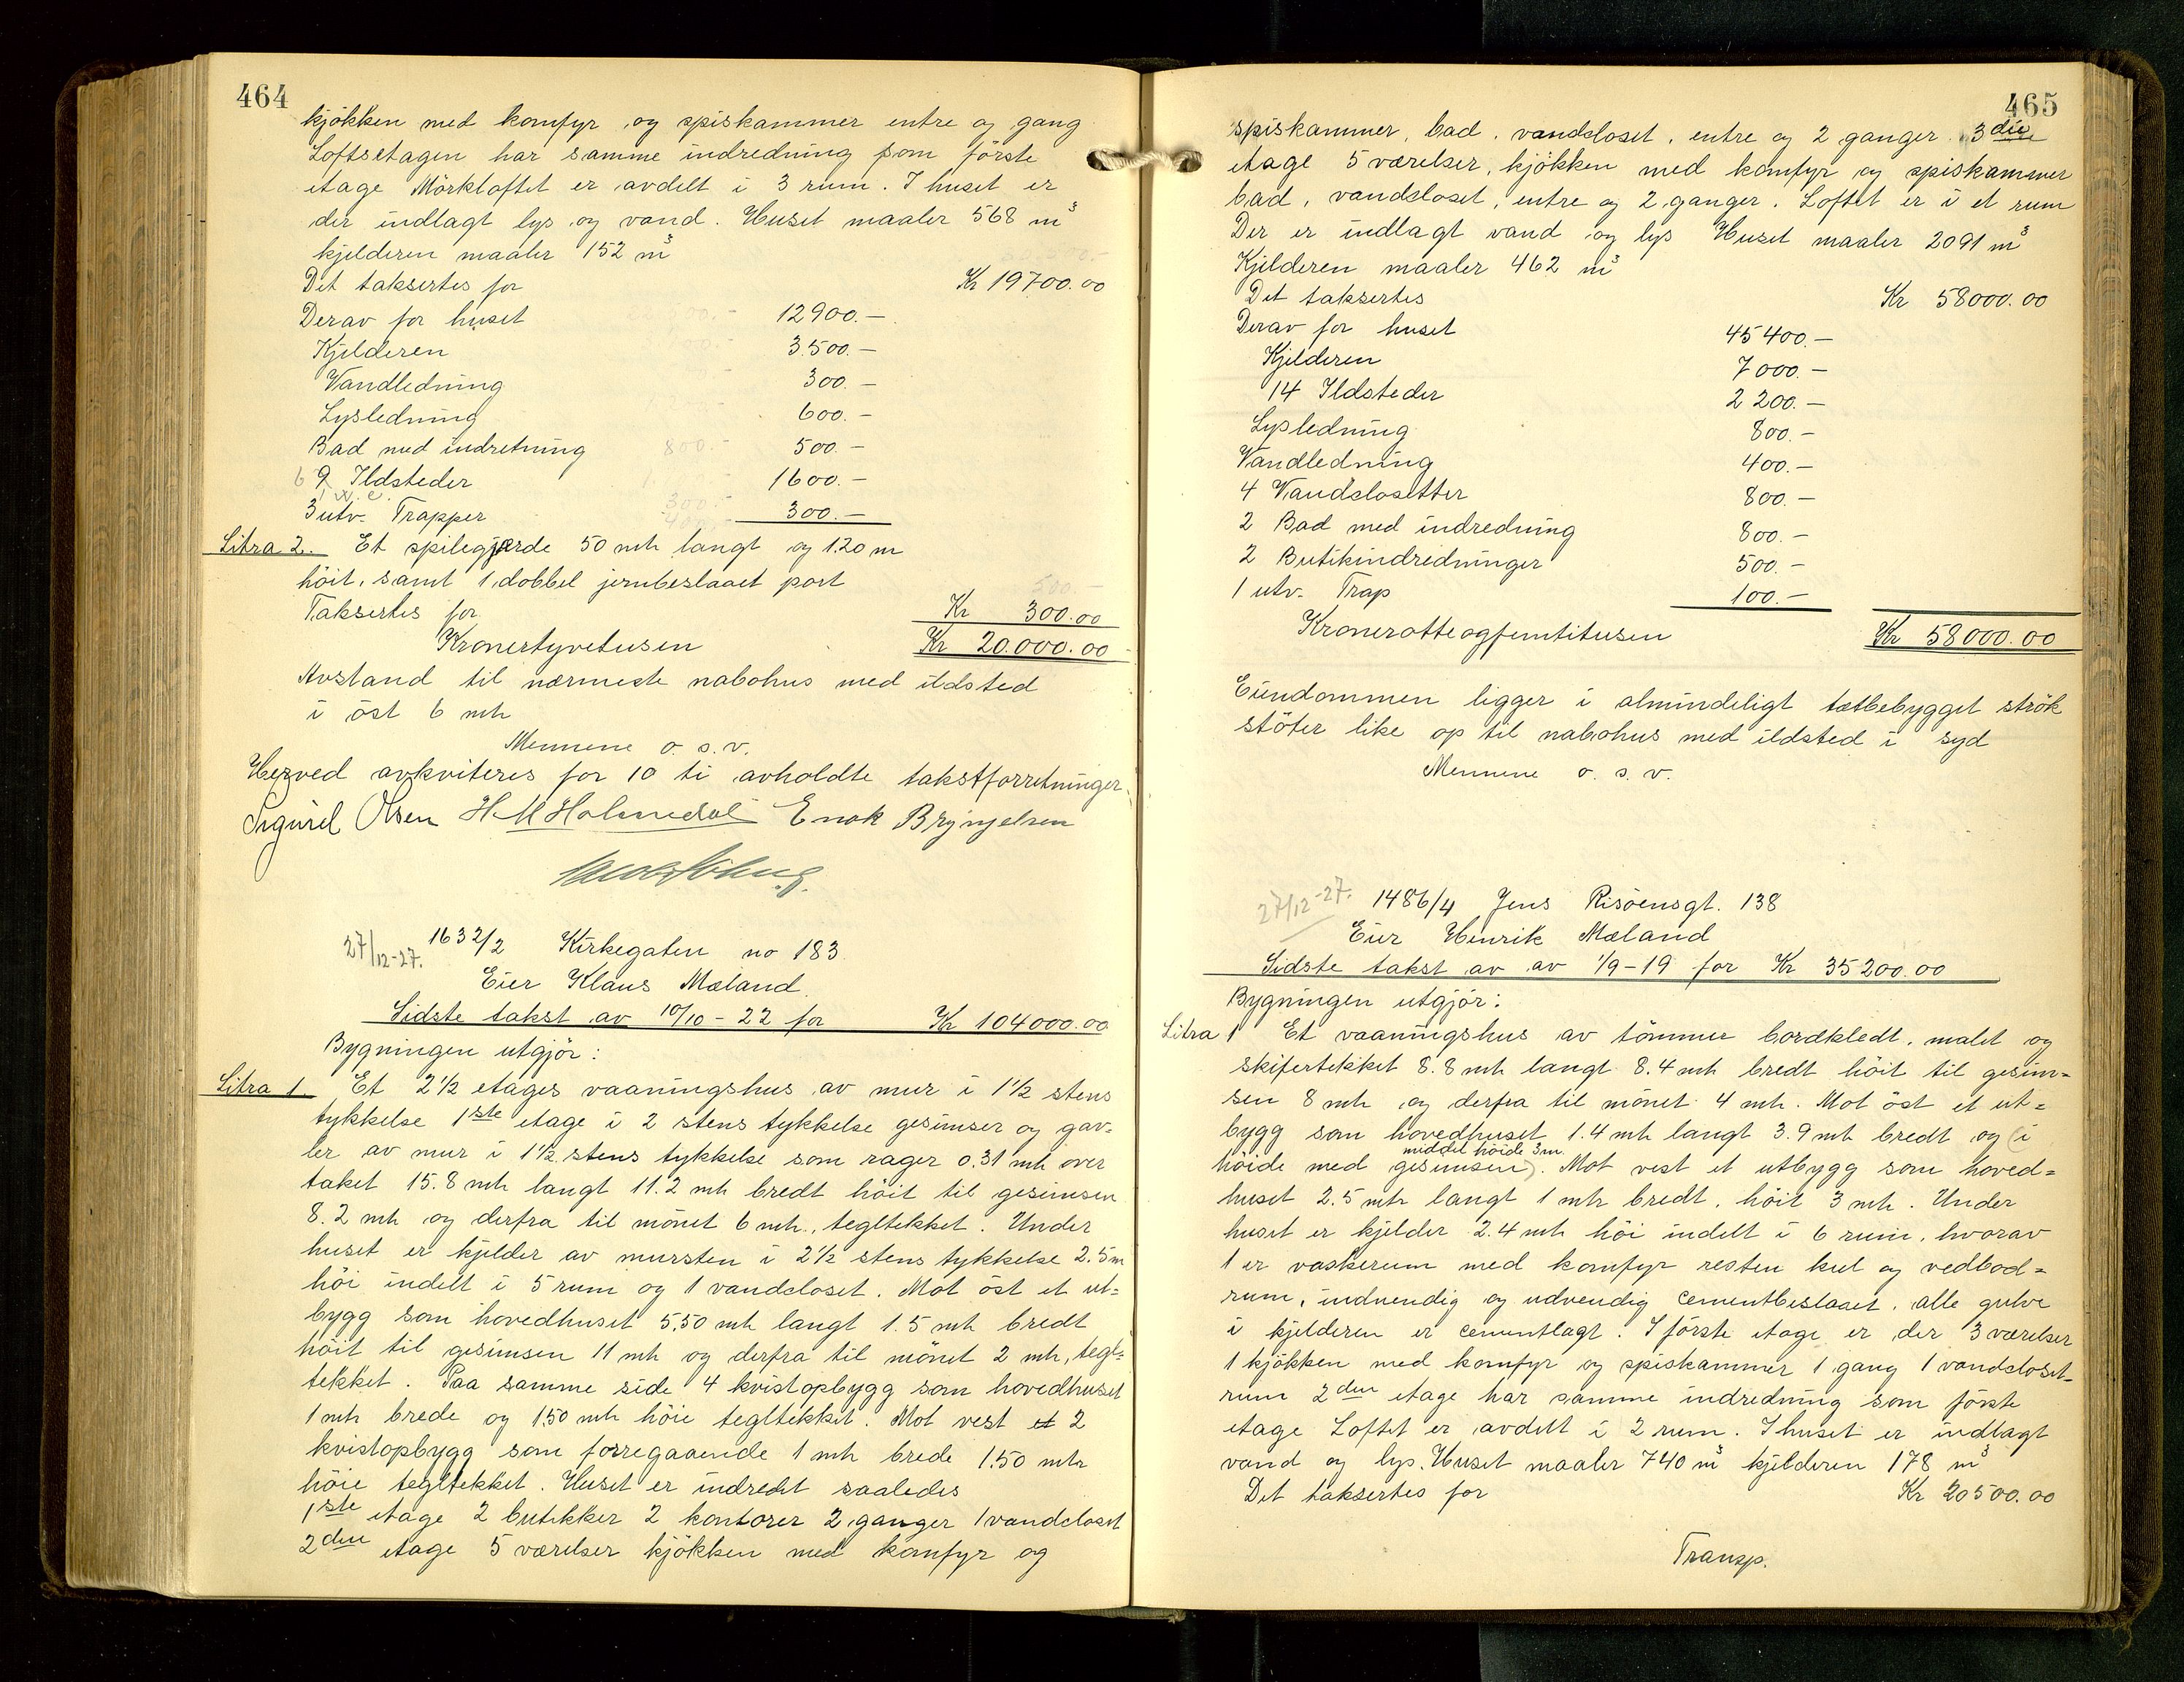 464
kjökken med komfyr og spiskammer entre og gang
Loftsetagen har samme indredning som förste
etage Mörkloftet er avdelt i 3 rum. I huset er
der indlagt lys og vand. Huset maaler 568 m³
kjelderen maaler 152 m³
Det taksertes for Kr 19700.00
Derav for huset 12900.—
Kjelderen 3.500.—
Vandledning 300.—
Lysledning 600.—
Bad med indretning 500.—
9 Ildsteder 1600.—
3 utv. Trapper 300.—
Litra 2. Et spilegjærde 50 mtr langt og 1.20 m
höit, samt 1 dobbel jernbeslaaet port
Taksertes for Kr 300.00
Kronertyvetusen Kr 20.000.00
Avstand til nærmeste nabohus med ildsted
i öst 6 mtr
Mennene o. s. v.
Herved avkviteres for 10 ti avholdte takstforretninger.
Sigurd Olsen H M Holmedal Enok Brynjelsen
27/12-27. 1632/2 Kirkegaten no 183
Eier Klaus Mæland
Sidste takst av 10/10 - 22 for Kr 104000.00
Bygningen utgjör:
Litra 1. Et 2½ etages vaaningshus av mur i 1½ stens
tykkelse 1ste etage i 2 stens tykkelse gesimser og gav=
ler av mur i 1½ stens tykkelse som rager 0.31 mtr over
taket 15.8 mtr langt 11.2 mtr bredt höit til gesimsen
8.2 mtr og derfra til mönet 6 mtr., tegltekket. Under
huset er kjelder av mursten i 2½ stens tykkelse 2.5 m
höi indelt i 5 rum og 1 vandcloset. Mot öst et ut=
bygg som hovedhuset 5.50 mtr langt 1.5 mtr bredt
höit til gesimsen 11 mtr og derfra til mönet 2 mtr, tegl=
tekket. Paa samme side 4 kvistopbygg som hovedhuset
1 mtr brede og 1.50 mtr höie tegltekket. Mot vest et 2
kvistopbygg som forregaaende 1 mtr brede 1.50 mtr
höie tegltekket. Huset er indredet saaledes
1ste etage 2 butikker 2 kontorer 2 ganger 1 vandcloset
2den etage 5 værelser kjökken med komfyr og
465
spiskammer, bad, vandcloset, entre og 2 ganger. 3die
etage 5 værelser, kjökken med komfyr og spiskammer
bad, vandcloset, entre og 2 ganger. Loftet er i et rum
Der er indlagt vand og lys Huset maaler 2091 m³
Kjelderen maaler 462 m³
Det taksertes Kr 58000.00
Derav for huset 45400.—
Kjelderen 7000.—
14 Ildsteder 2200.—
Lysledning 800.—
Vandledning 400.—
4 Vandclosetter 800.—
2 Bad med indredning 800.—
2 Butikindredninger 500.—
1 utv. Trap 100.—
Kronerotteogfemtitusen Kr 58000.00
Eiendommen ligger i almindeligt tætbebygget strök
stöter like op til nabohus med ildsted i syd
Mennene o. s. v.
27/12-27. 1486/4 Jens Risöensgt. 138
Eier Henrik Mæland
Sidste takst av av 1/9-19 for Kr 35200.00
Bygningen utgjör:
Litra 1 Et vaaningshus av tömmer bordkledt, malet og
skifertekket 8.8 mtr langt 8.4 mtr bredt höit til gesim=
sen 8 mtr og derfra til mönet 4 mtr. Mot öst et ut=
bygg som hovedhuset 1.4 mtr langt 3.9 mtr bredt og (i
middel höide 3 m.
höide med gesimsen). Mot vest et utbygg som hoved=
huset 2.5 mtr langt 1 mtr bredt, höit 3 mtr. Under
huset er kjelder 2.4 mtr höi indelt i 6 rum, hvorav
1 er vaskerum med komfyr resten kul og vedbod=
rum, indvendig og udvendig cementbeslaaet, alle gulve
i kjelderen er cementlagt. I förste etage er der 3 værelser
1 kjökken med komfyr og spiskammer 1 gang 1 vandcloset=
rum 2den etage har samme indredning som förste
etage Loftet er avdelt i 2 rum. I huset er indlagt
vand og lys. Huset maaler 740 m³ kjelderen 178 m³
Det taksertes for Kr 20500.00
Transp.